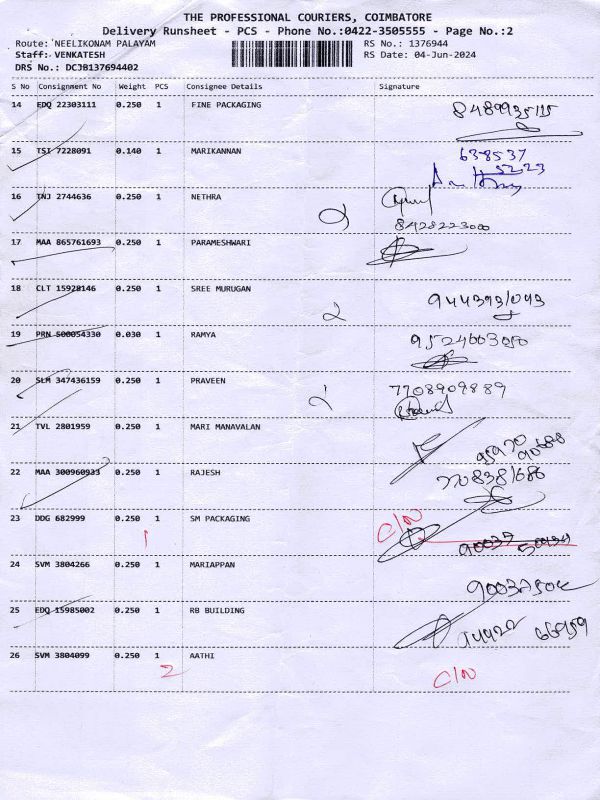 THE PROFESSIONAL COURIERS, COIMBATORE
Delivery Runsheet - PCS - Phone No.:0422-3505555 - Page No.:2
Route: NEELIKONAM PALAYAM RS No.: 1376944
Staff: VENKATESH RS Date: 04-Jun-2024
DRS No.: DCJB137694402
S No Consignment No Weight PCS Consignee Details Signature
14 EDQ 22303111 0.250 1 FINE PACKAGING
15 TSI 7228091 0.140 1 MARIKANNAN 638537
5223
16 TNJ 2744636 0.250 1 NETHRA
8428223000
17 MAA 865761693 0.250 1 PARAMESHWARI
18 CLT 15928146 0.250 1 SREE MURUGAN
2
19 PRN 500054330 0.030 1 RAMYA 9524603050
20 SLM 347436159 0.250 1 PRAVEEN 7708909889
21 TVL 2801959 0.250 1 MARI MANAVALAN
95970
90688
22 MAA 300960933 0.250 1 RAJESH 7708381686
23 DDG 682999 0.250 1 SM PACKAGING C/N
1 90037
24 SVM 3804266 0.250 1 MARIAPPAN
25 EDQ 15985002 0.250 1 RB BUILDING
26 SVM 3804099 0.250 1 AATHI
2 C/N